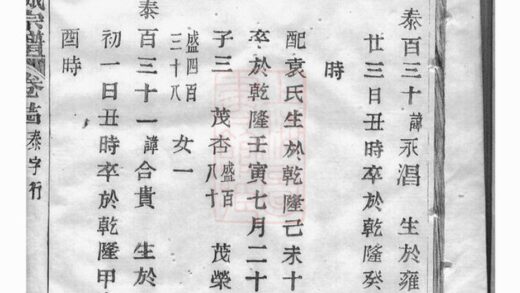 泰百三十諱永淐 生於雍
廿三日丑時卒於乾隆癸
時
配袁氏生於乾隆己未十
卒於乾隆壬寅七月二十
子三 茂杏盛百八十 茂榮
盛四百三十八 女一
泰百三十一諱合貴 生於
初一日丑時卒於乾隆甲
酉時
宗譜 卷 泰字行